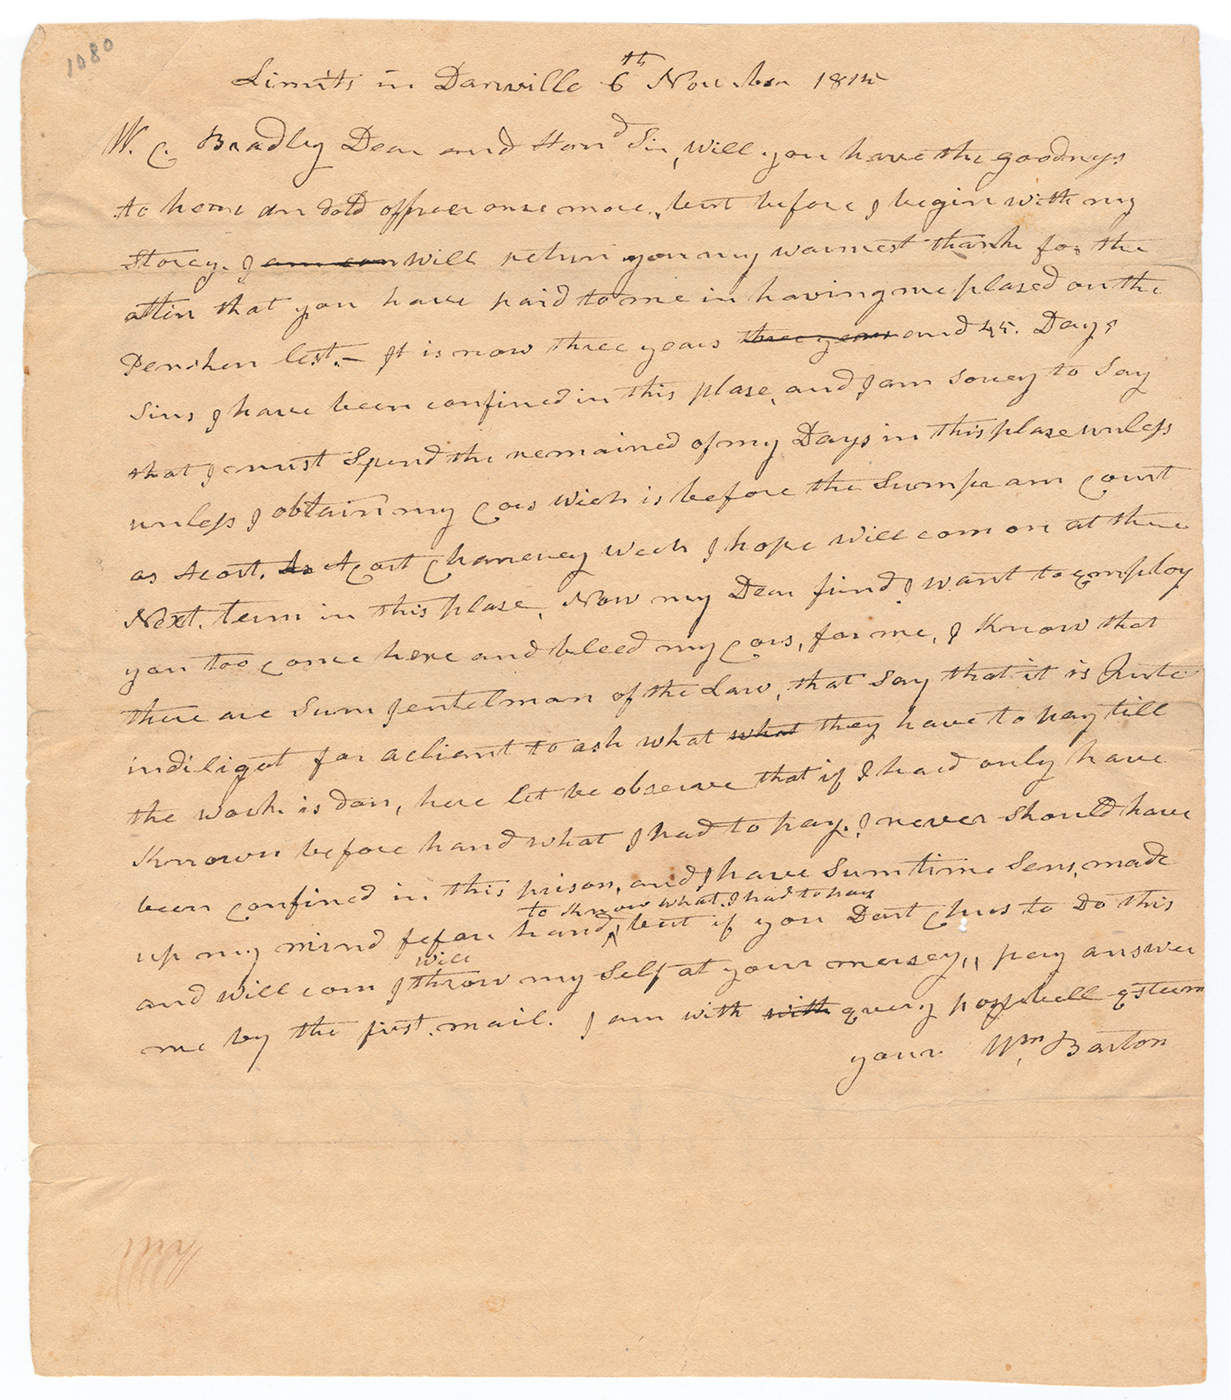 1080
Limits in Danville 6th November 1814
W. C. Bradley Dear and Hond Sir, will you have the goodness
to here an old officer once more, but before I begin with my
Storey. I am con will return you my warmest thanks for the
attin that you have paid to me in having me plased on the
Penshen list. – It is now three years three years and 45. Days
Sins I have been confined in this plase, and I am sorrey to Say
that I must Spend the remained of my Days in this plase unless
unless I obtain my Cors wich is before the Sumpram Court
as Acort. As A Cort Chancery wich I hope will com on at there
Next. term in this plase, Now my Dear frind, I want to employ
you too come here and pleed my Cors, for me, I Know that
there are Sum jentelman of the Law, that Say that it is Quite
indiligat for acliant to ask what what they have to pay till
the work is don, here let be observe that if I had only have
Known before hand what I had to pay. I never should have
been Confined in this prison, and I have Sumtime Sens, made
up my mind fefor hand, to Know what I had to pay but if you Dont Chus to Do this
and will com I will throw my Self at your mersey,, pray answer
me by the first mail. I am with with every posabell esteem
your Wm Barton